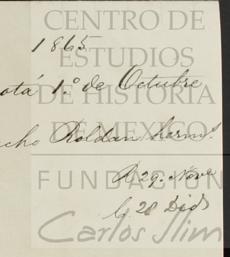 CENTRO DE
1865
ESTUDIOS
otá 1.º de Octubre
DE HISTORIA
cho Roldan herm.s
DE MEXICO
FUNDACION
R 29. Nove
C 28 Dic
Carlos Slim